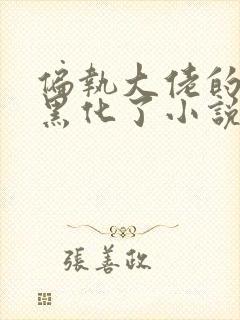 偏執大佬的
黑化了小說
張善政